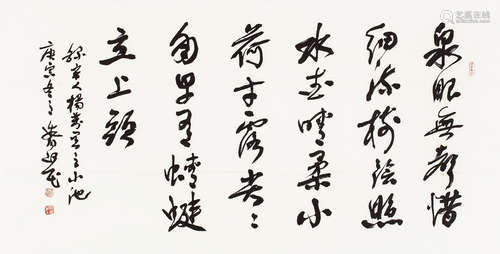 泉眼無聲惜
細流樹陰照
水愛晴柔小
荷才露尖〻
角早有蜻蜓
立上頭
錄宋人楊萬里之小池
庚寅冬月